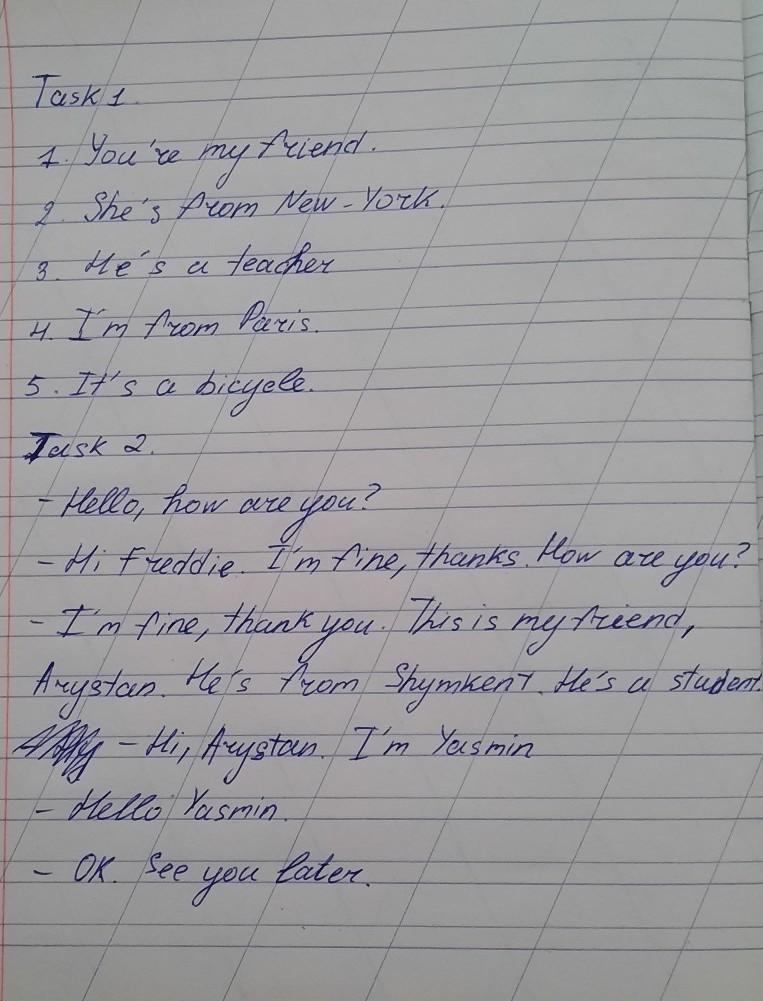 Task 1.
1. You're my friend.
2. She's from New-York.
3. He's a teacher
4. I'm from Paris.
5. It's a bicycle.
Task 2.
- Hello, how are you?
- Hi Freddie. I'm fine, thanks. How are you?
- I'm fine, thank you. This is my friend,
Arystan. He's from Shymkent. He's a student.
- Hi, Arystan. I'm Yasmin
- Hello Yasmin.
- OK. See you later.